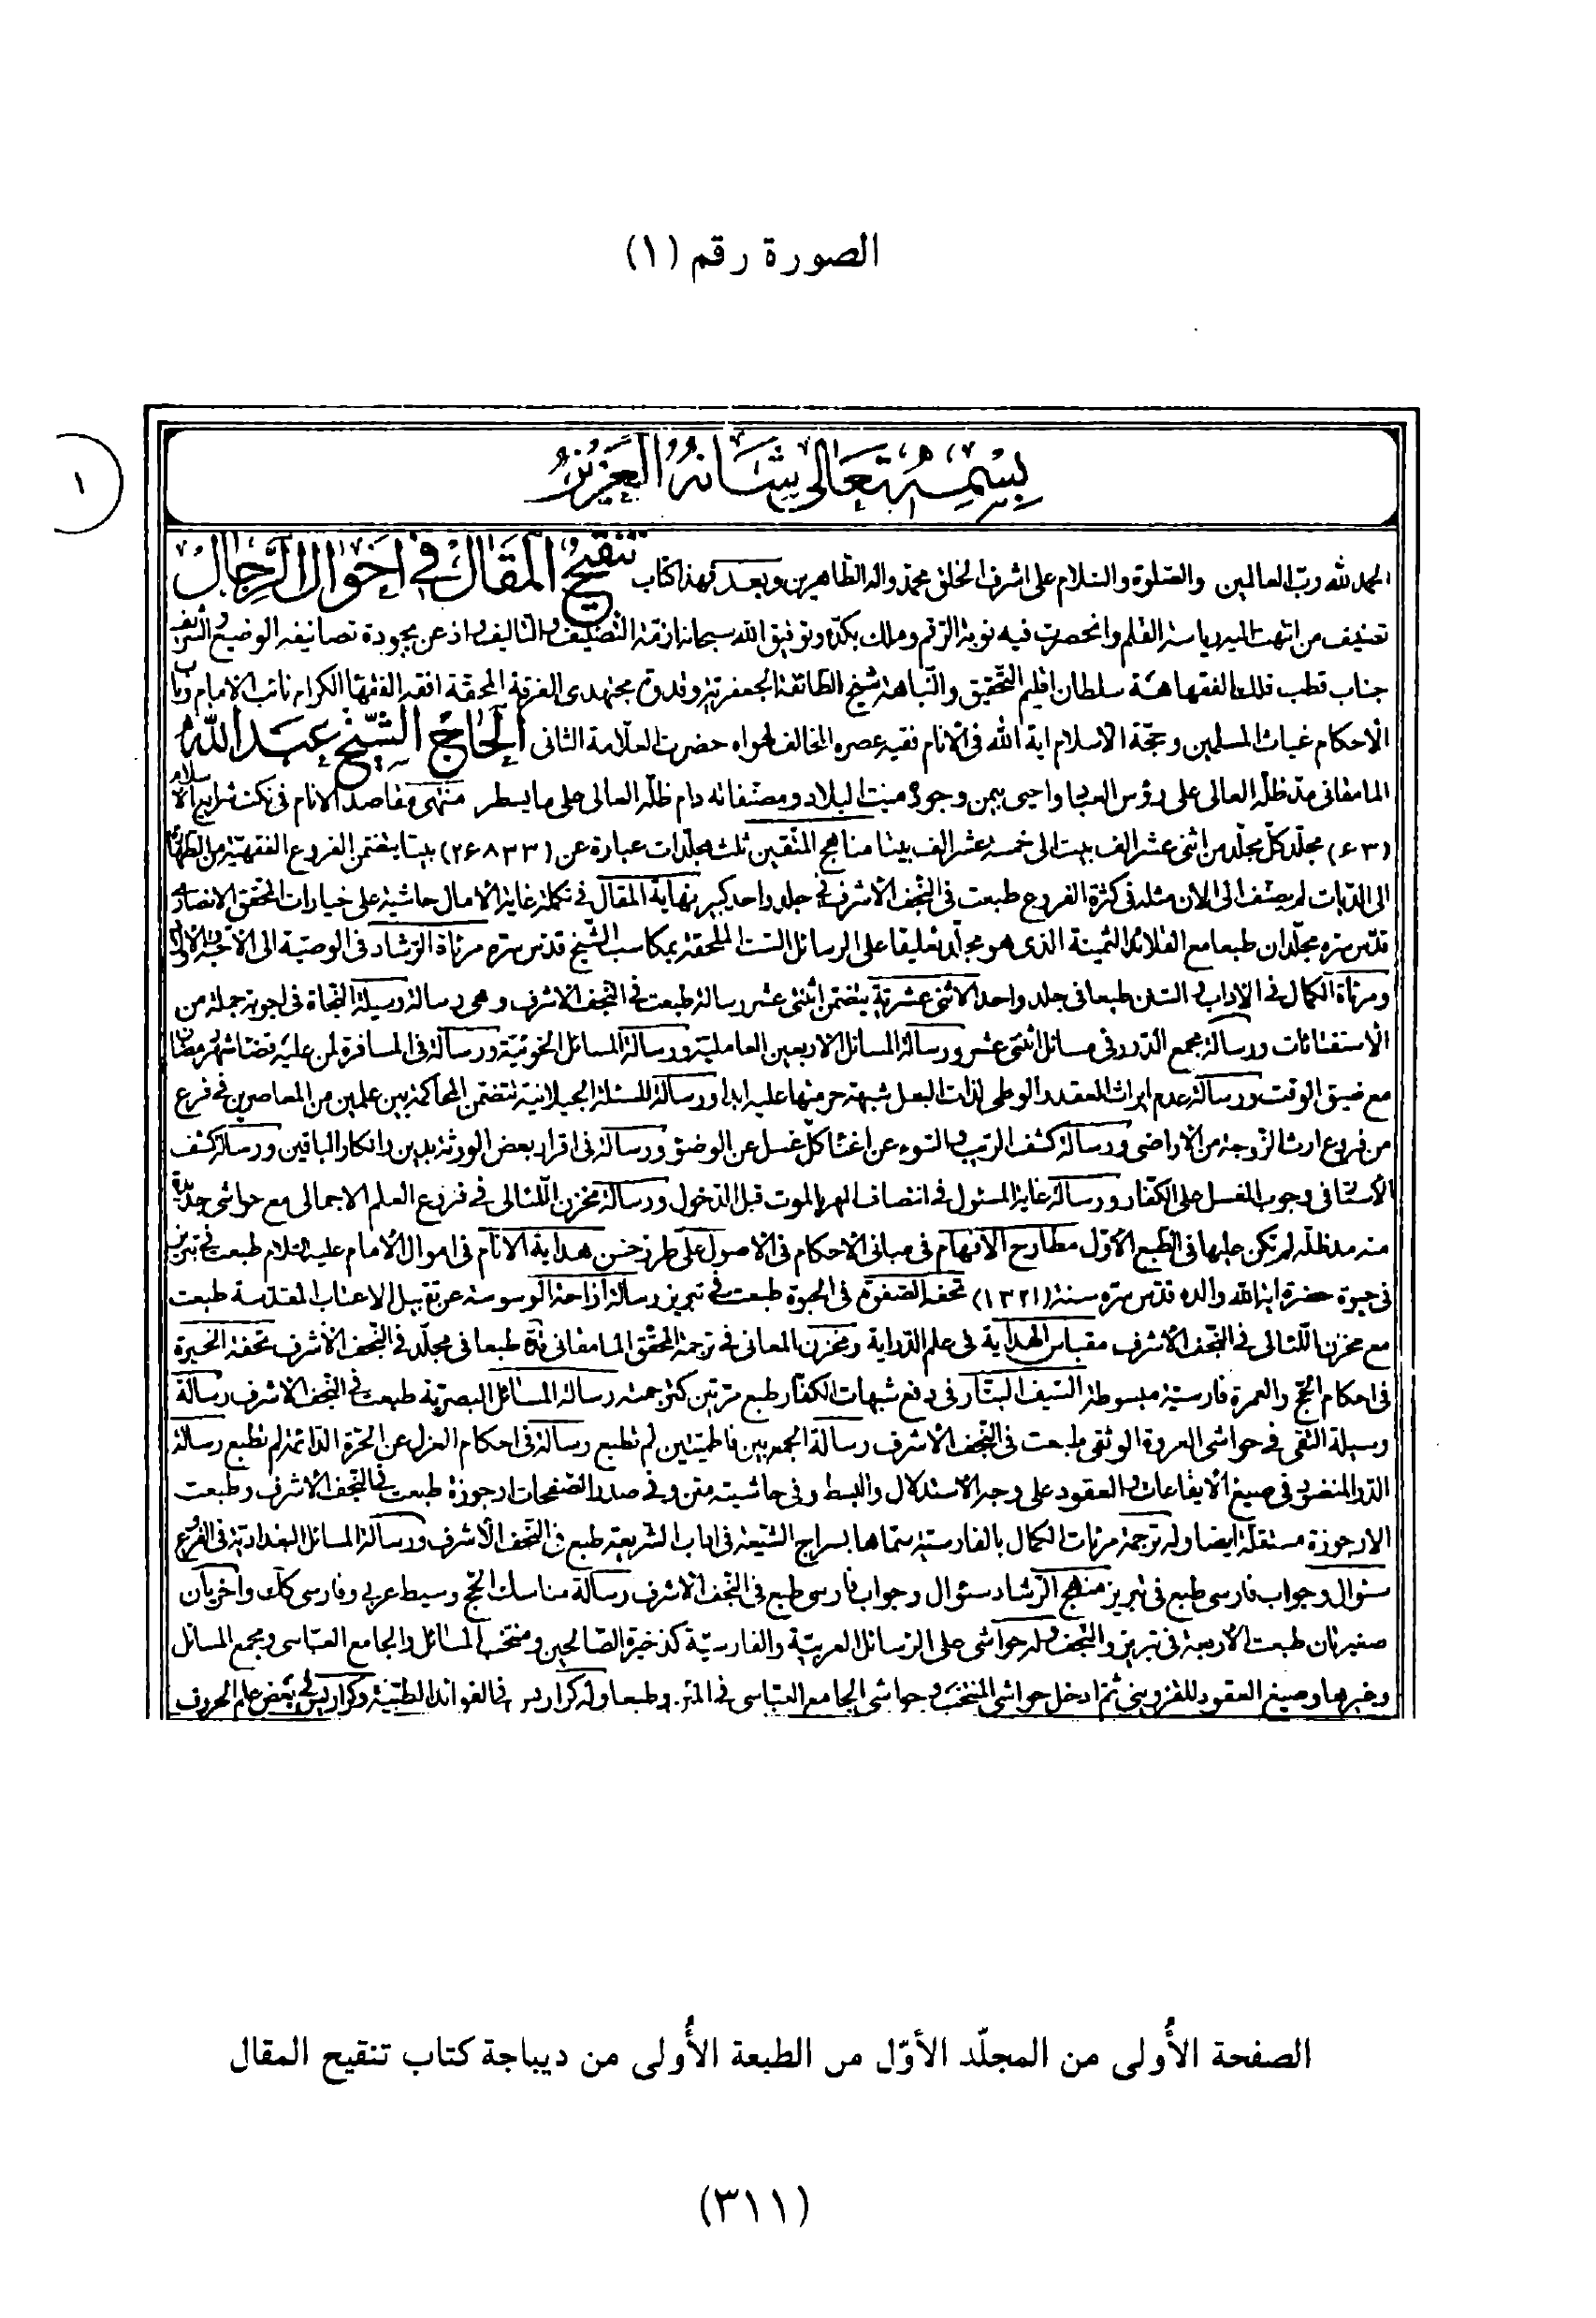 الصورة رقم (١)
١
بسمه تعالى شانه العزيز
الحمد لله رب العالمين والصلوة والسلام على اشرف الخلق محمد واله الطاهرين وبعد فهذا كتاب تنقيح المقال في احوال الرجال
تصنيف من انتهت اليه رياسة القلم وانحصرت فيه نوبة الرقم وملك بكده وتوفيق الله سبحانه ازمة التصنيف والتاليف واذعن بجودة تصانيفه الوضيع والشريف
جناب قطب فلك الفقاهة سلطان اقليم التحقيق والنباهة شيخ الطائفة الجعفرية وقدوة مجتهدى الفرقة المحقة افقه الفقهاء الكرام نائب الامام وباب
الأحكام غياث المسلمين وحجة الاسلام اية الله في الأنام فقيه عصره المخالف لهواه حضرت العلامة الثانى الحاج الشيخ عبد الله
المامقانى مد ظله العالى على رؤس العباد واحيى بيمن وجوده ميت البلاد ومصنفاته دام ظله العالى على ما يسطر منتهى مقاصد الانام في نكت شرايع الاسلام
(٦٣) مجلد كل مجلد من اثنى عشر الف بيت الى خمسة عشر الف بيتا مناهج المتقين ثلث مجلدات عبارة عن (٢٦٨٣٣) بيتا يتضمن الفروع الفقهية من الطهارة
الى الديات لم يصنف الى الأن مثله في كثرة الفروع طبعت في النجف الأشرف في جلد واحد كبير نهاية المقال في تكملة غاية الأمال حاشية على خيارات المحقق الانصارى
قدس سره مجلدان طبعا مع القلائد الثمينة الذى هو مجلد تعليقا على الرسائل الست الملحقة بمكاسب الشيخ قدس سره مرئاة الرشاد في الوصية الى الأحبة والاولاد
ومرئاة الكمال في الاداب والسنن طبعا في جلد واحد الاثنى عشرية يتضمن اثنتى عشر رسالة طبعت في النجف الاشرف وهى رسالة وسيلة النجاة في اجوبة جملة من
الأستفتائات ورسالة مجمع الدرر في مسائل اثنتى عشر ورسالة المسائل الاربعين العاملية ورسالة المسائل الخوئية ورسالة في المسافرة لمن عليه قضاء شهر رمضان
مع ضيق الوقت ورسالة عدم ايراث العقد والوطى لذات البعل شبهة حرمتها عليه ابدا ورسالة المسئلة الجيلانية تتضمن المحاكمة بين علمين من المعاصرين في فرع
من فروع ارث الزوجة من الأراضى ورسالة كشف الريب والسوء عن اغناء كل غسل عن الوضوء ورسالة في اقرار بعض الورثة بدين وانكار الباقين ورسالة كشف
الأستار في وجوب الغسل على الكفار ورسالة غاية المسئول في انتصاف المهر بالموت قبل الدخول ورسالة مخزن اللئالى في فروع العلم الاجمالى مع حواشى جديدة
منه مد ظله لم تكن عليها في الطبع الأول مطارح الأفهام في مبانى الاحكام في الاصول على طرز حسن هداية الانام في اموال الأمام عليه السلام طبعت في تبريز
في حيوة حضرة اية الله والده قدس سره سنة (١٣٢١) تحفة الصفوة في الحبوة طبعت في تبريز رسالة ازاحة الوسوسة عن تقبيل الاعتاب المقدسة طبعت
مع مخزن اللئالى في النجف الأشرف مقباس الهداية في علم الدراية ومخزن المعانى في ترجمة المحقق المامقانى طبعا في مجلد في النجف الأشرف تحفة الخيرة
في احكام الحج والعمرة فارسية مبسوطة السيف البتار في دفع شبهات الكفار طبع مرتين كترجمته رسالة المسائل البصرية طبعت في النجف الاشرف رسالة
وسيلة التقى في حواشى العروة الوثقى طبعت في النجف الأشرف رسالة الجمع بين فاطميتين لم تطبع رسالة في احكام العزل عن الحرة الدائمة لم تطبع رسالة
الدر المنضود في صيغ الأيقاعات والعقود على وجه الاستدلال والبسط وفي حاشيته متن وفي صدر الصفحات ارجوزة طبعت في النجف الاشرف وطبعت
الارجوزة مستقلة ايضا وله ترجمة مرئات الكمال بالفارسية سماها بسراج الشيعة في اداب الشريعة طبع في النجف الأشرف ورسالة المسائل البغدادية في الفروع
سئوال وجواب فارسى طبع في تبريز منهج الرشاد سئوال وجواب فارسى طبع في النجف الاشرف رسالة مناسك الحج وسيط عربى وفارسى كك واخريان
صغيرتان طبعت الأربعة في تبريز والنجف وله حواشى على الرسائل العربية والفارسية كذخيرة الصالحين ومنتخب المسائل والجامع العباسى ومجمع المسائل
وغيرها وصيغ العقود للقزوينى ثم ادخل حواشى المنتخب وحواشى الجامع العباسى في المتن وطبعا وله كراريس في الفوائد الطبية وكراريس في بعض علم الحروف
الصفحة الأُولى من المجلّد الأوّل من الطبعة الأُولى من ديباجة كتاب تنقيح المقال
(٣١١)